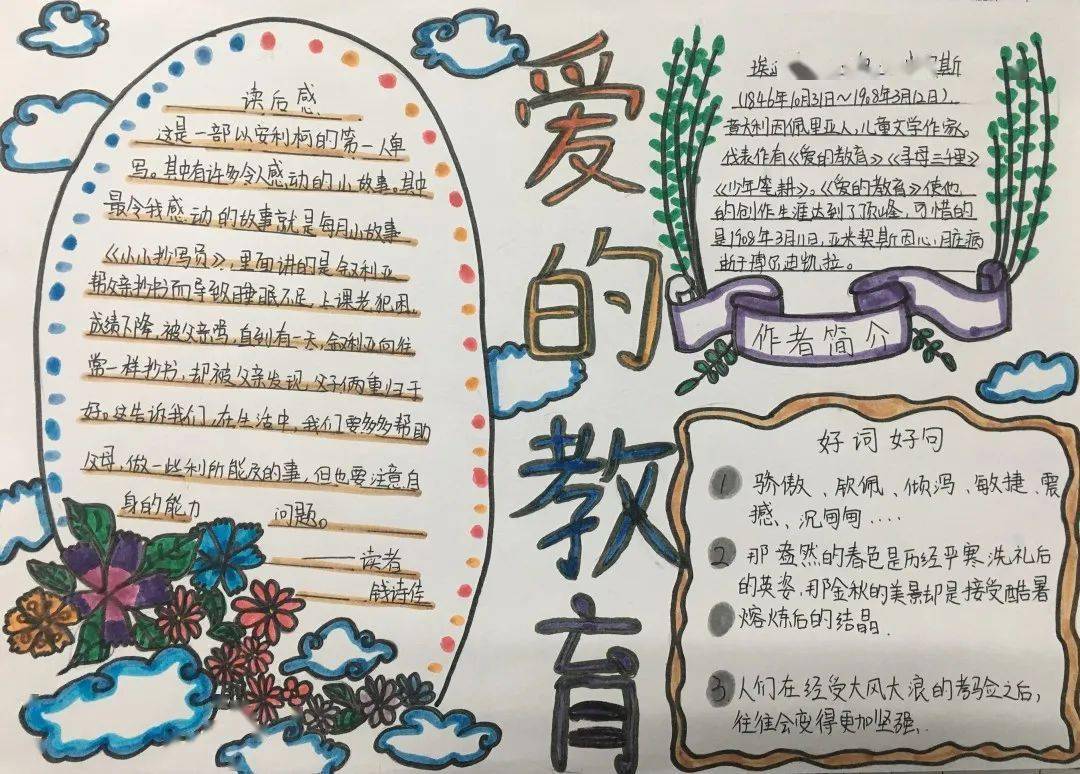 读后感
这是一部以安利柯的第一人单
写。其中有许多令人感动的小故事。其中
最令我感动的故事就是每月小故事
《小小抄写员》,里面讲的是叙利亚
帮父亲抄书而导致睡眠不足,上课老犯困,
成绩下降,被父亲骂,直到有一天,叙利亚向往
常一样抄书,却被父亲发现,父子俩重归于
好。这告诉我们,在生活中,我们要多多帮助
父母,做一些利所能及的事,但也要注意自
身的能力 问题。
——读者
钱诗佳
爱的教育
埃 斯
(1846年10月31日~1908年3月12日)
意大利因佩里亚人,儿童文学作家。
代表作有《爱的教育》《寻母三千里》
《少年笔耕》。《爱的教育》使他
的创作生涯达到了顶峰,可惜的
是1908年3月11日,亚米契斯因心脏病
逝于博尔迪凯拉。
作者简介
好词好句
1 骄傲、钦佩、倾泻、敏捷、震
撼、沉甸甸....
2 那盎然的春色是历经严寒洗礼后
的英姿,那金秋的美景却是接受酷暑
熔炼后的结晶.
3 人们在经受大风大浪的考验之后,
往往会变得更加坚强.